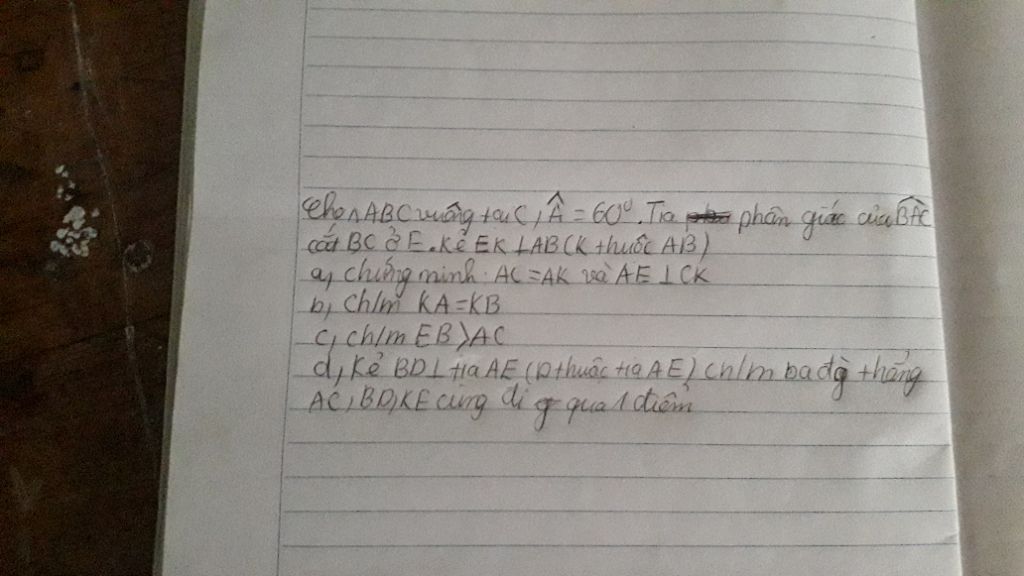 Cho △ABC vuông tại C, Â = 60⁰. Tia phân giác của BAC
cắt BC ở E. Kẻ EK ⊥ AB (K thuộc AB)
a, chứng minh AC = AK và AE ⊥ CK
b, Ch/m KA = KB
c, ch/m EB > AC
d, Kẻ BD ⊥ tia AE (D thuộc tia AE) ch/m ba đg thẳng
AC, BD, KE cùng đi qua 1 điểm